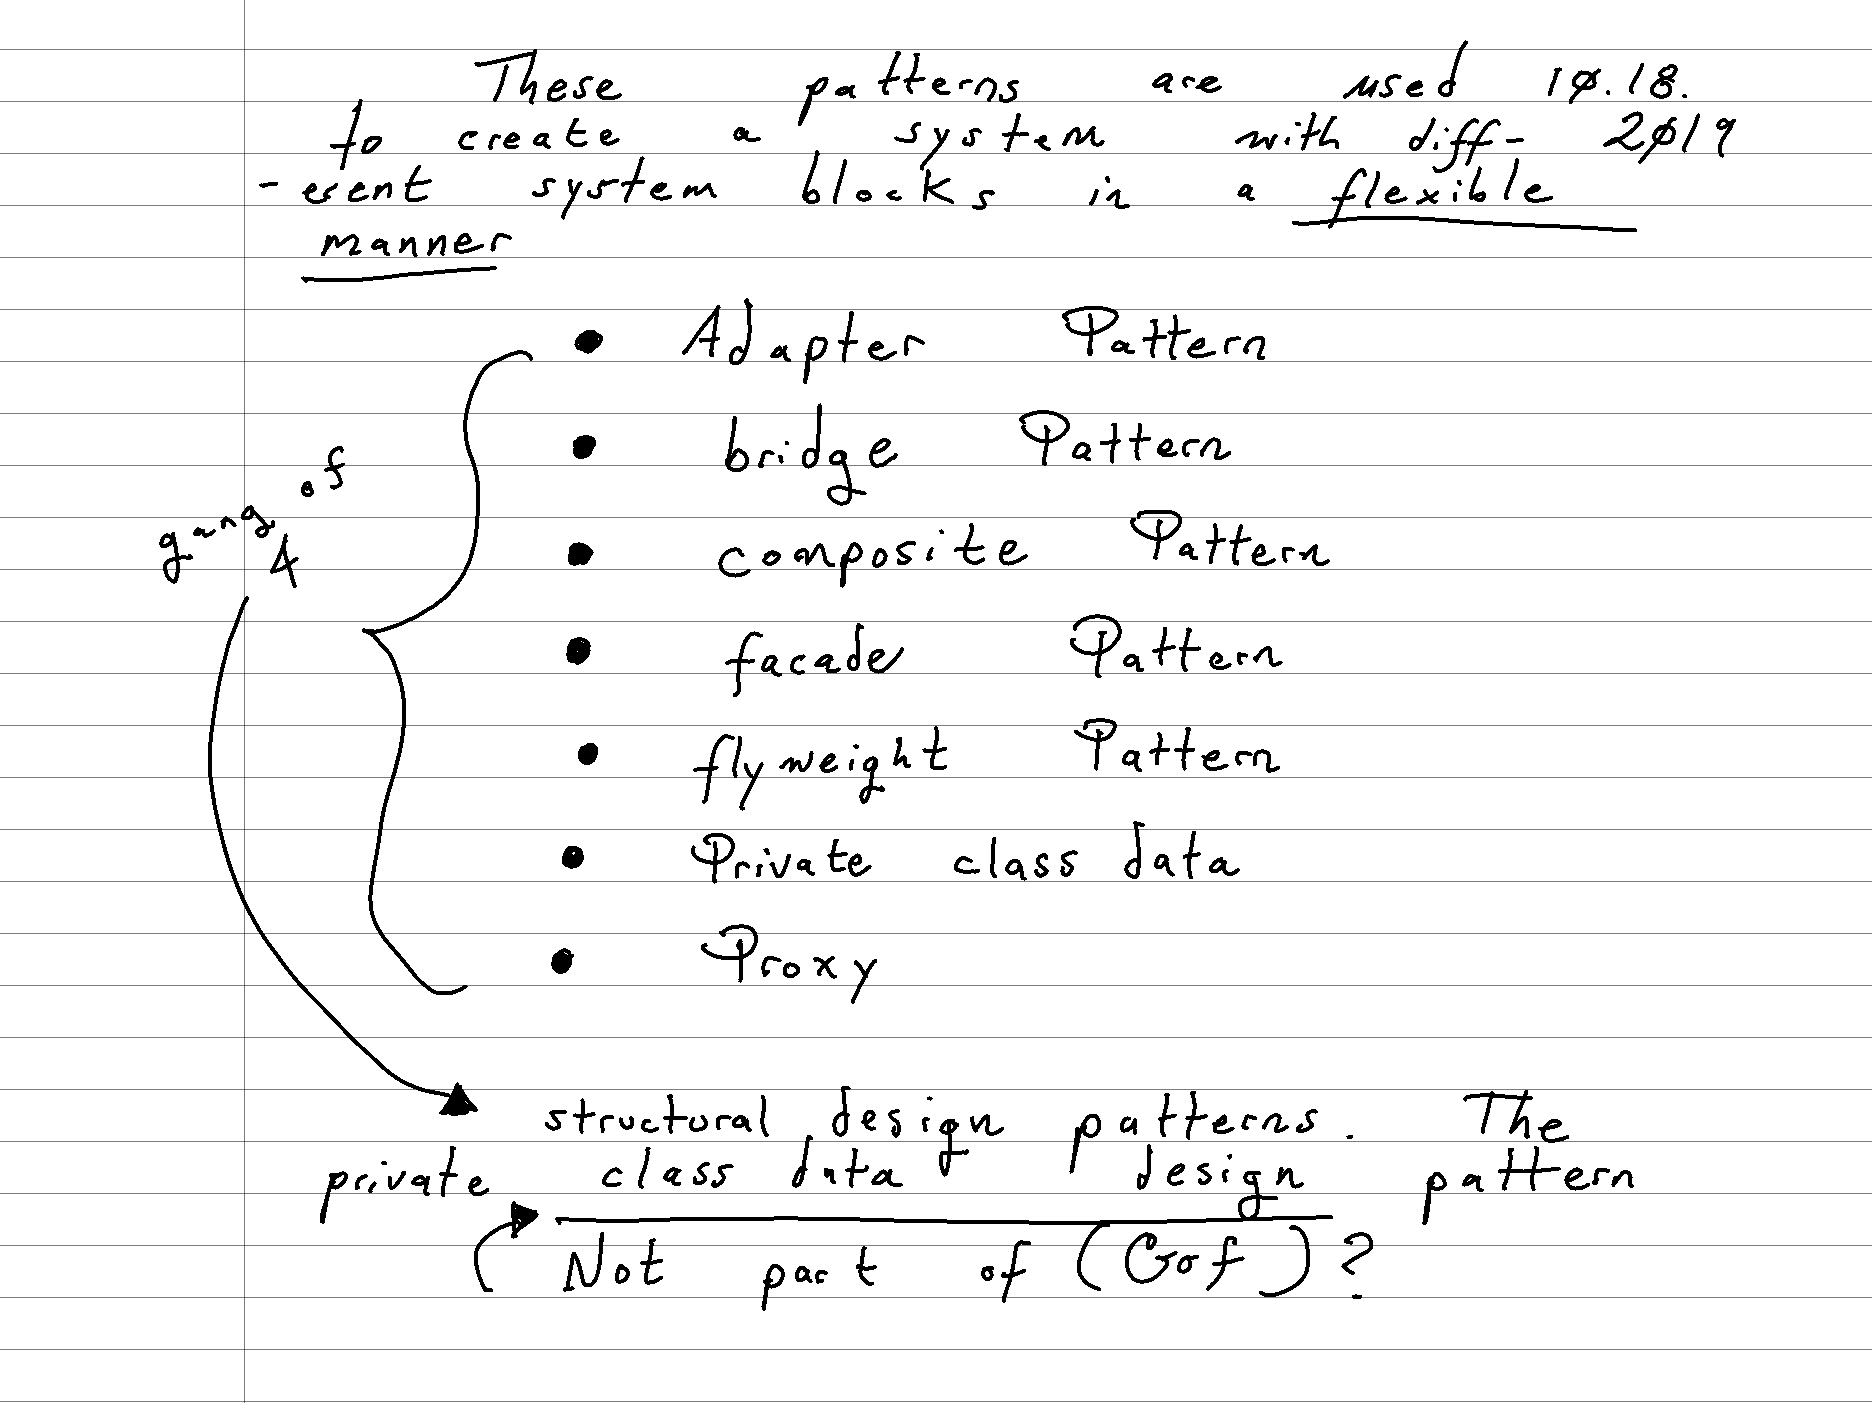 These patterns are used 10.18.
to create a system with diff- 2019
-erent system blocks in a flexible
manner
• Adapter Pattern
• bridge Pattern
gang of
4
• composite Pattern
• facade Pattern
• flyweight Pattern
• Private class data
• Proxy
structural design patterns. The
private class data design pattern
Not part of (Gof)?